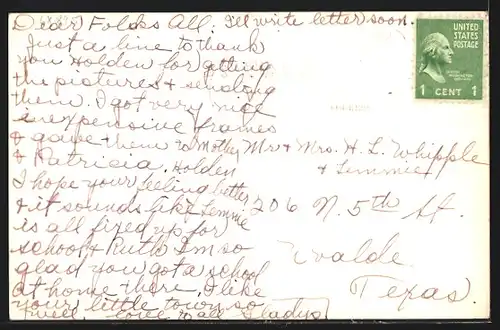 Dear Folks All. I'll write letter soon.
Just a line to thank
you Holden for getting
the pictures & sending
them. I got very nice
inexpensive frames
& gave them to Mother
& Patricia. Holden
I hope your feeling better
& it sounds like Lemmie
is all fixed up for
school & Ruth I'm so
glad you got a school
at home there, I like
your little town so
well. Love to all Gladys
UNITED
STATES
POSTAGE
1 CENT 1
Mr & Mrs. H. L. Whipple
& Lemmie
206 N. 5th St.
Uvalde
Texas